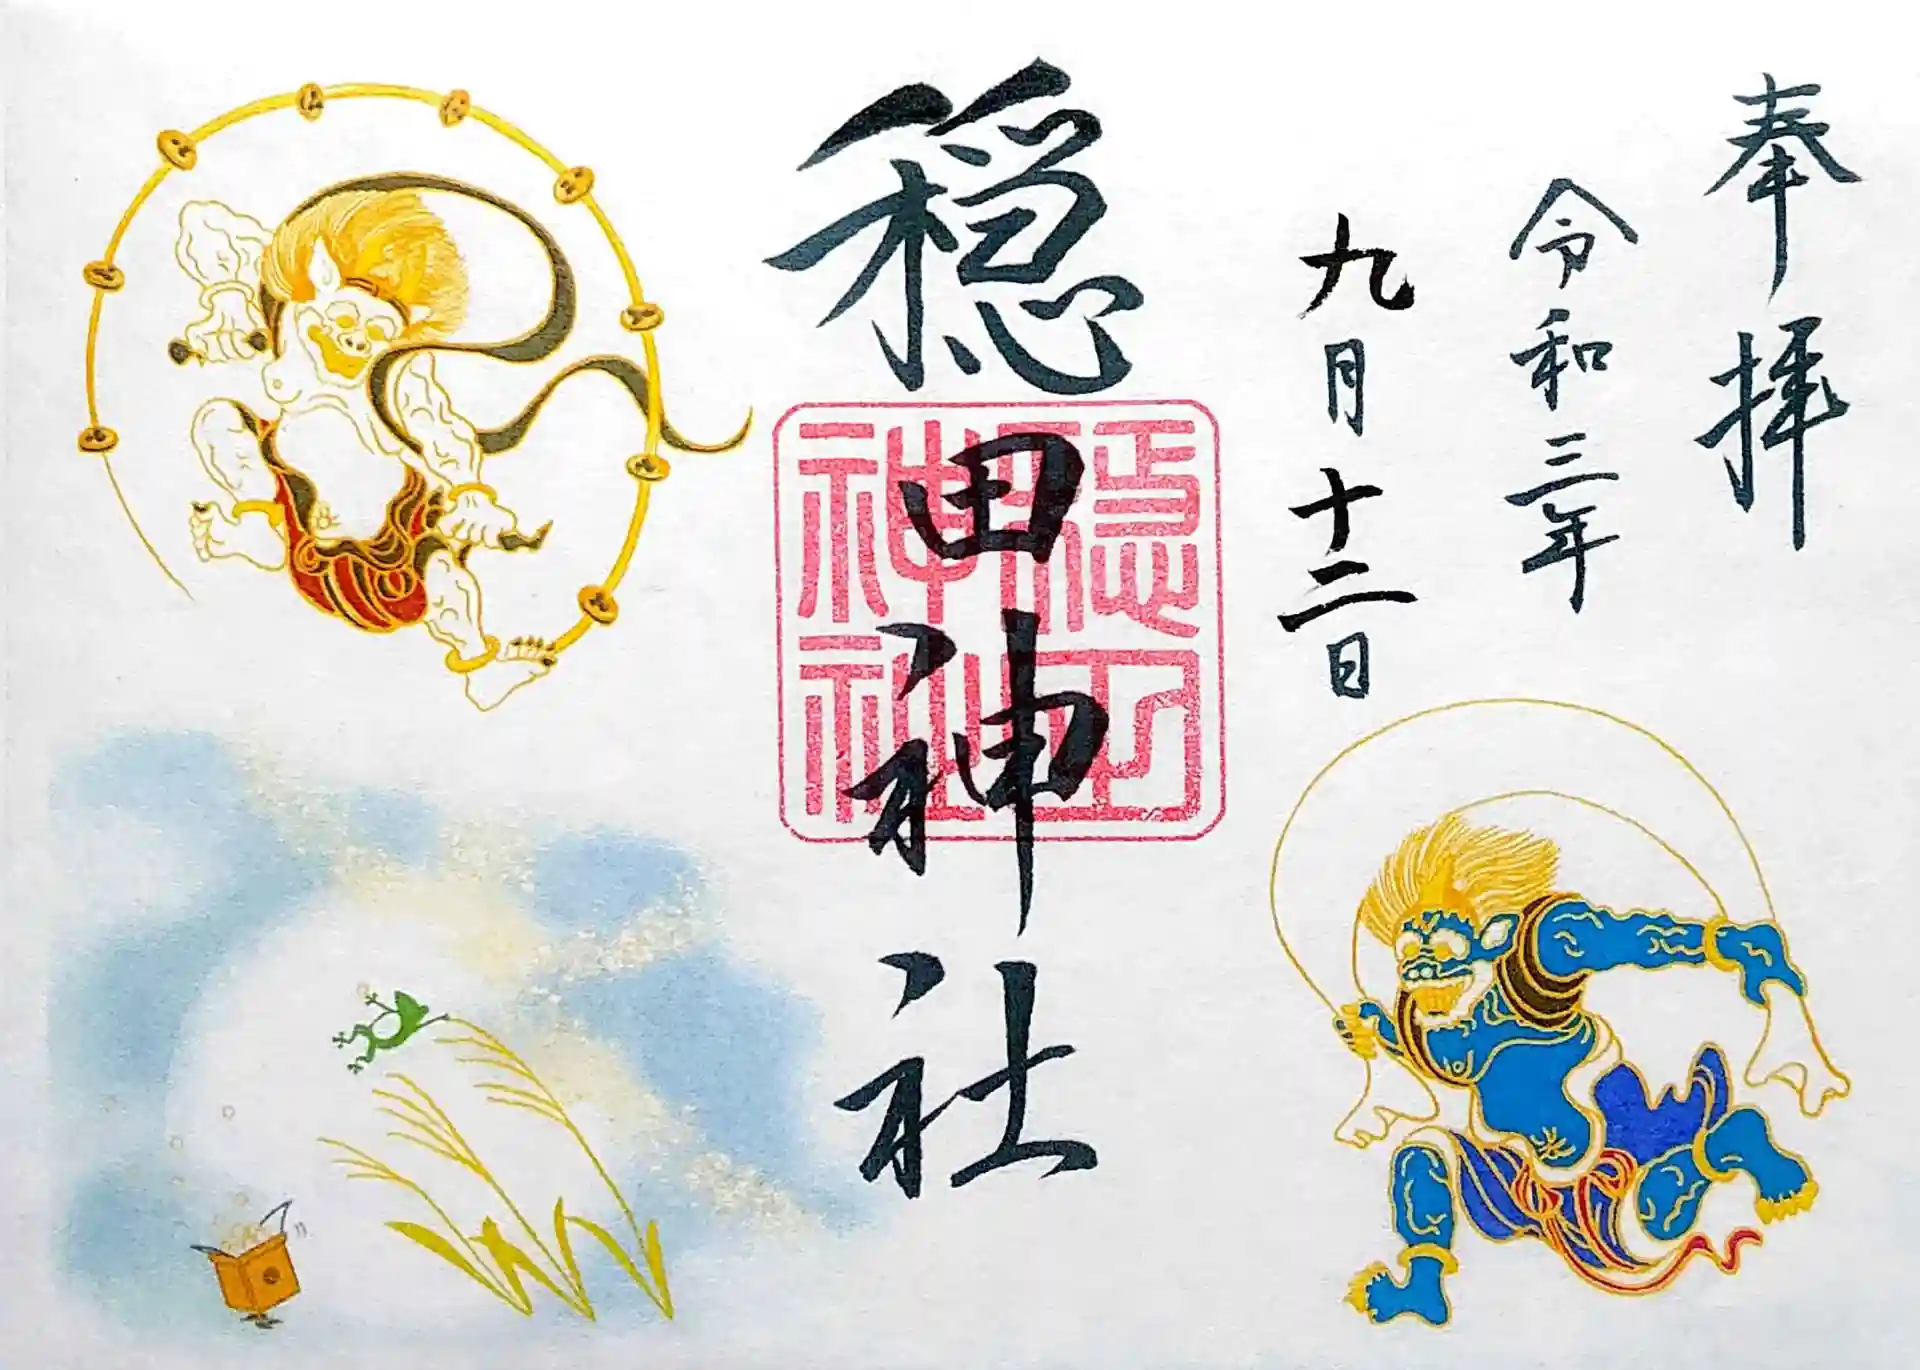 奉拝
令和三年
九月十二日
穏田神社
穏田
神社